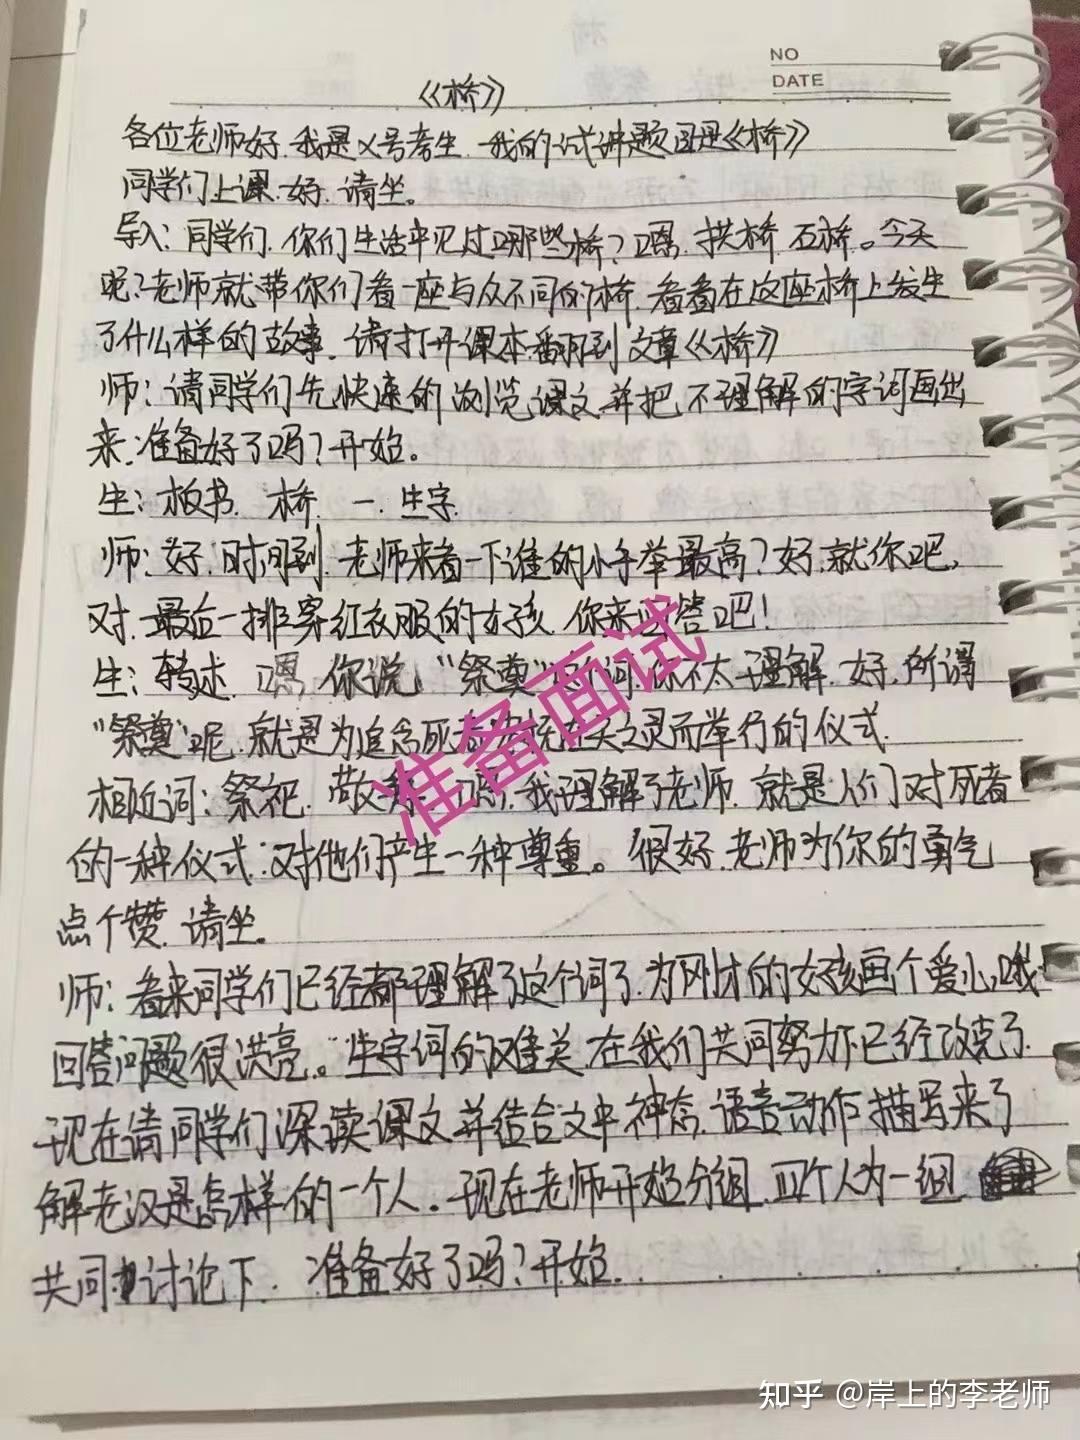 NO
DATE
《桥》
各位老师好.我是X号考生.我的试讲题目是《桥》
同学们上课.好.请坐。
导入：同学们.你们生活中见过哪些桥？嗯.拱桥.石桥。今天
呢？老师就带你们看一座与众不同的桥.看看在这座桥上发生
了什么样的故事.请打开课本翻到文章《桥》
师：请同学们先快速的浏览课文并把不理解的字词画出
来.准备好了吗？开始。
生：板书.桥.一.生字.
师：好.时间到.老师来看一下谁的小手举最高？好.就你吧.
对.最后一排穿红衣服的女孩.你来回答吧！
生：转述.嗯.你说"祭奠"这个词你不太理解.好.所谓
"祭奠"呢.就是为追念死者在天之灵而举行的仪式.
相近词：祭祀.吗.我理解了老师.就是人们对死者
的一种仪式.对他们产生一种尊重。很好.老师为你的勇气
点个赞.请坐。
师：看来同学们已经都理解了这个词了.为刚才的女孩画个爱心哦.
回答问题很洪亮。生字词的难关.在我们共同努力下已经攻克了.
现在请同学们深读课文并结合文中神态.语言动作描写来了
解老汉是怎样的一个人。现在老师开始分组.四个人为一组
共同讨论下.准备好了吗？开始.
准备面试
知乎 @岸上的李老师